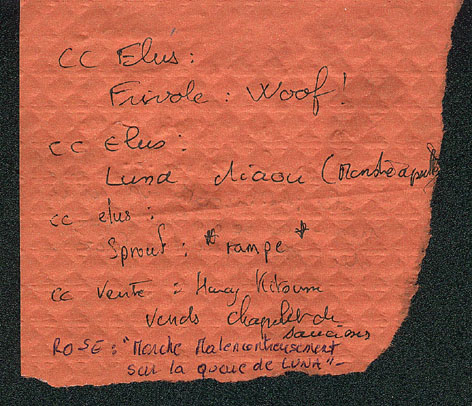 CC Elus :
Frivole : Woof !
CC Elus :
Luna Miaou (Monstre à poils)
CC elus :
Sprout : * rampe *
CC Vente : Harry
Vends chapelet de
saucisses
ROSE : "Marche Malencontreusement
sur la queue de LUNA" -